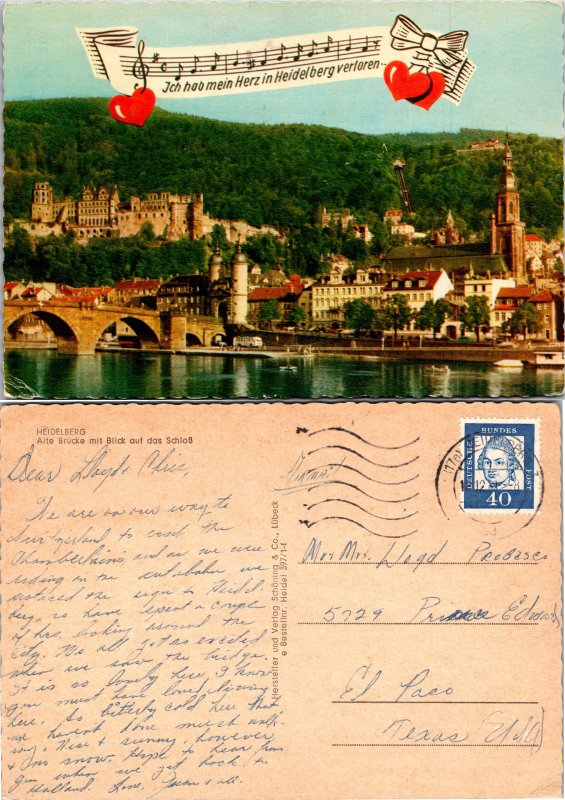 Ich hab mein Herz in Heidelberg verloren--
HEIDELBERG
Alte Brücke mit Blick auf das Schloß
Dear Lloyd & Chris,
We are on our way to
Switzerland to visit the
Chamberlains, and as we were
riding on the autobahn we
noticed the sign to Heidel-
berg, so have spent a couple
of hrs. looking around the
city. We all got so excited
when we saw the bridge.
It is so lovely here, I know
you must have loved living
here. So bitterly cold here that
we haven't done much walk-
ing. Nice & sunny, however
& no snow. Hope to hear from
you when we get back to
Holland. Love, Jean & all.
Hersteller und Verlag Schöning & Co., Lübeck
Bestellnr. Heidel 397/1-f
DEUTSCHE BUNDES POST
40
Mr & Mrs. Lloyd Probasco
5729 Prince Edward
El Paso
Texas